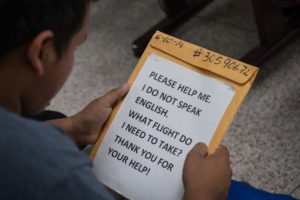 6-10-19 #3C590672
PLEASE HELP ME.
I DO NOT SPEAK
ENGLISH.
WHAT FLIGHT DO
I NEED TO TAKE?
THANK YOU FOR
YOUR HELP!